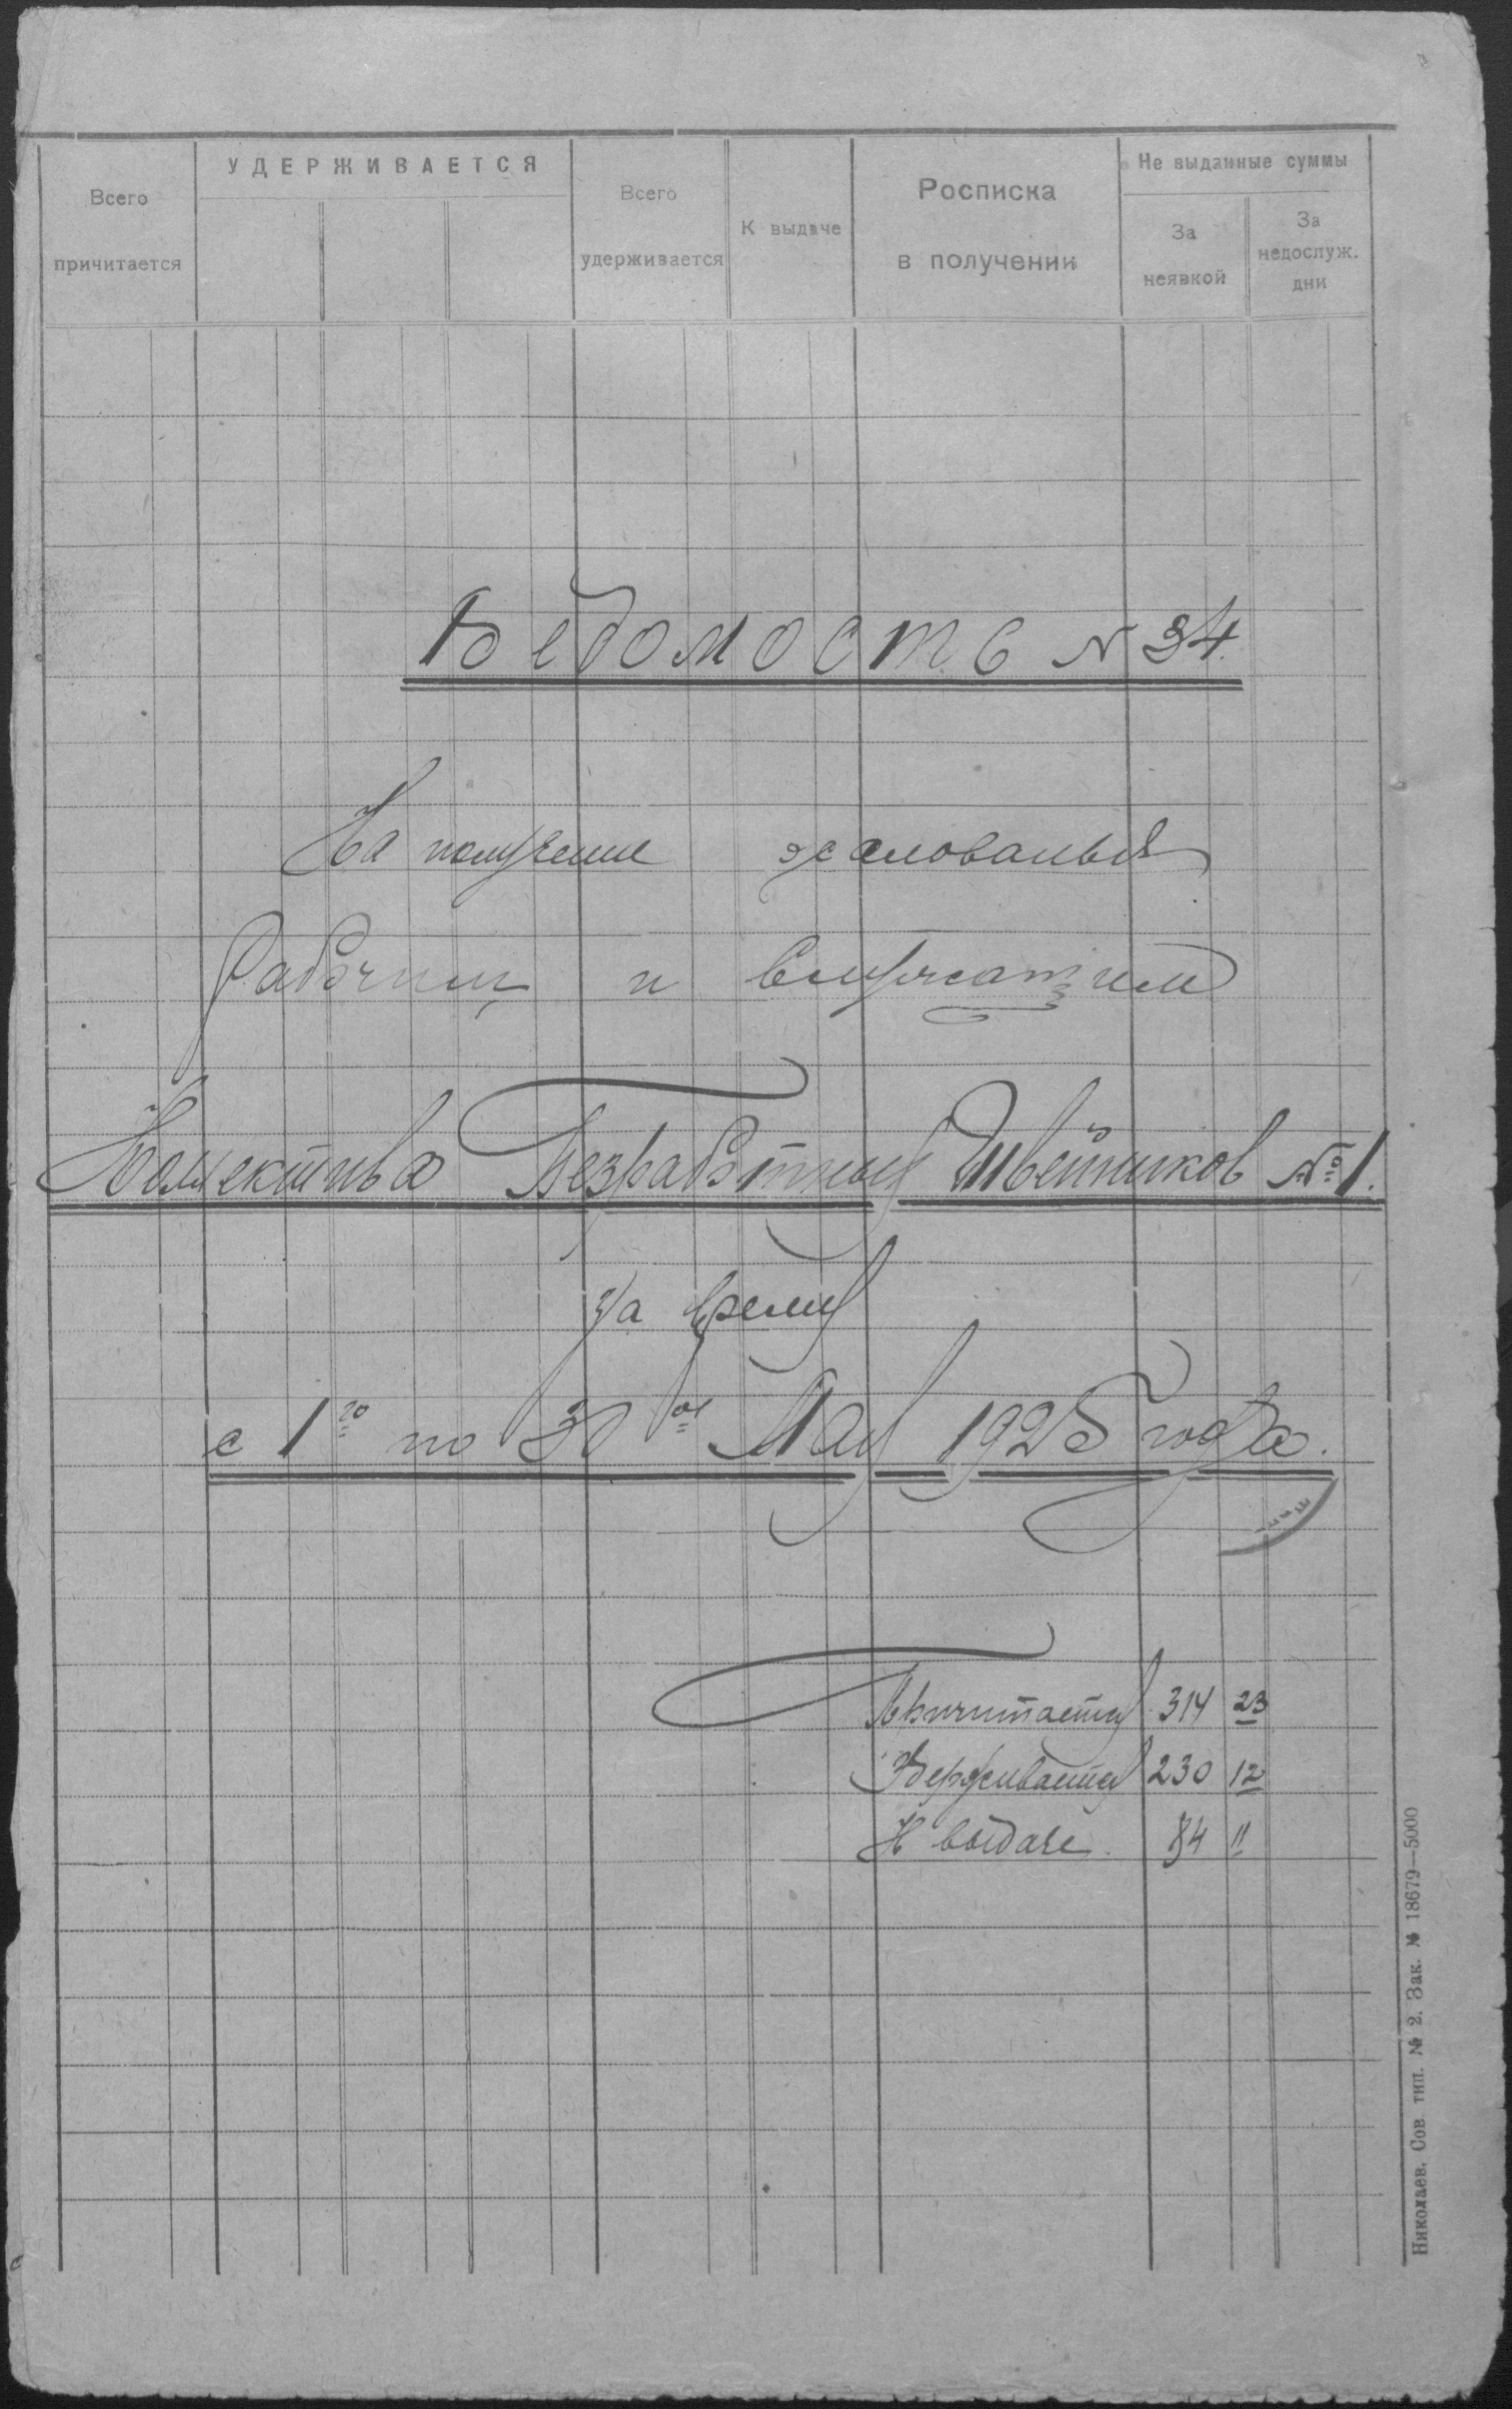 УДЕРЖИВАЕТСЯ
Не выданные суммы
Всего
причитается
Всего
удерживается
К выдаче
Росписка
в получении
За
неявкой
За
недослуж.
дни
Ведомость № 34.
На получение жалованья
Рабочим и Служащим
Коллектива Безработных Швейников № 1.
За время
с 1го по 30ое Мая 1925 года.
Причитается 314 23
Удерживается 230 12
К выдаче 84 11
Николаев. Сов тип. № 2. Зак. № 18679—5000